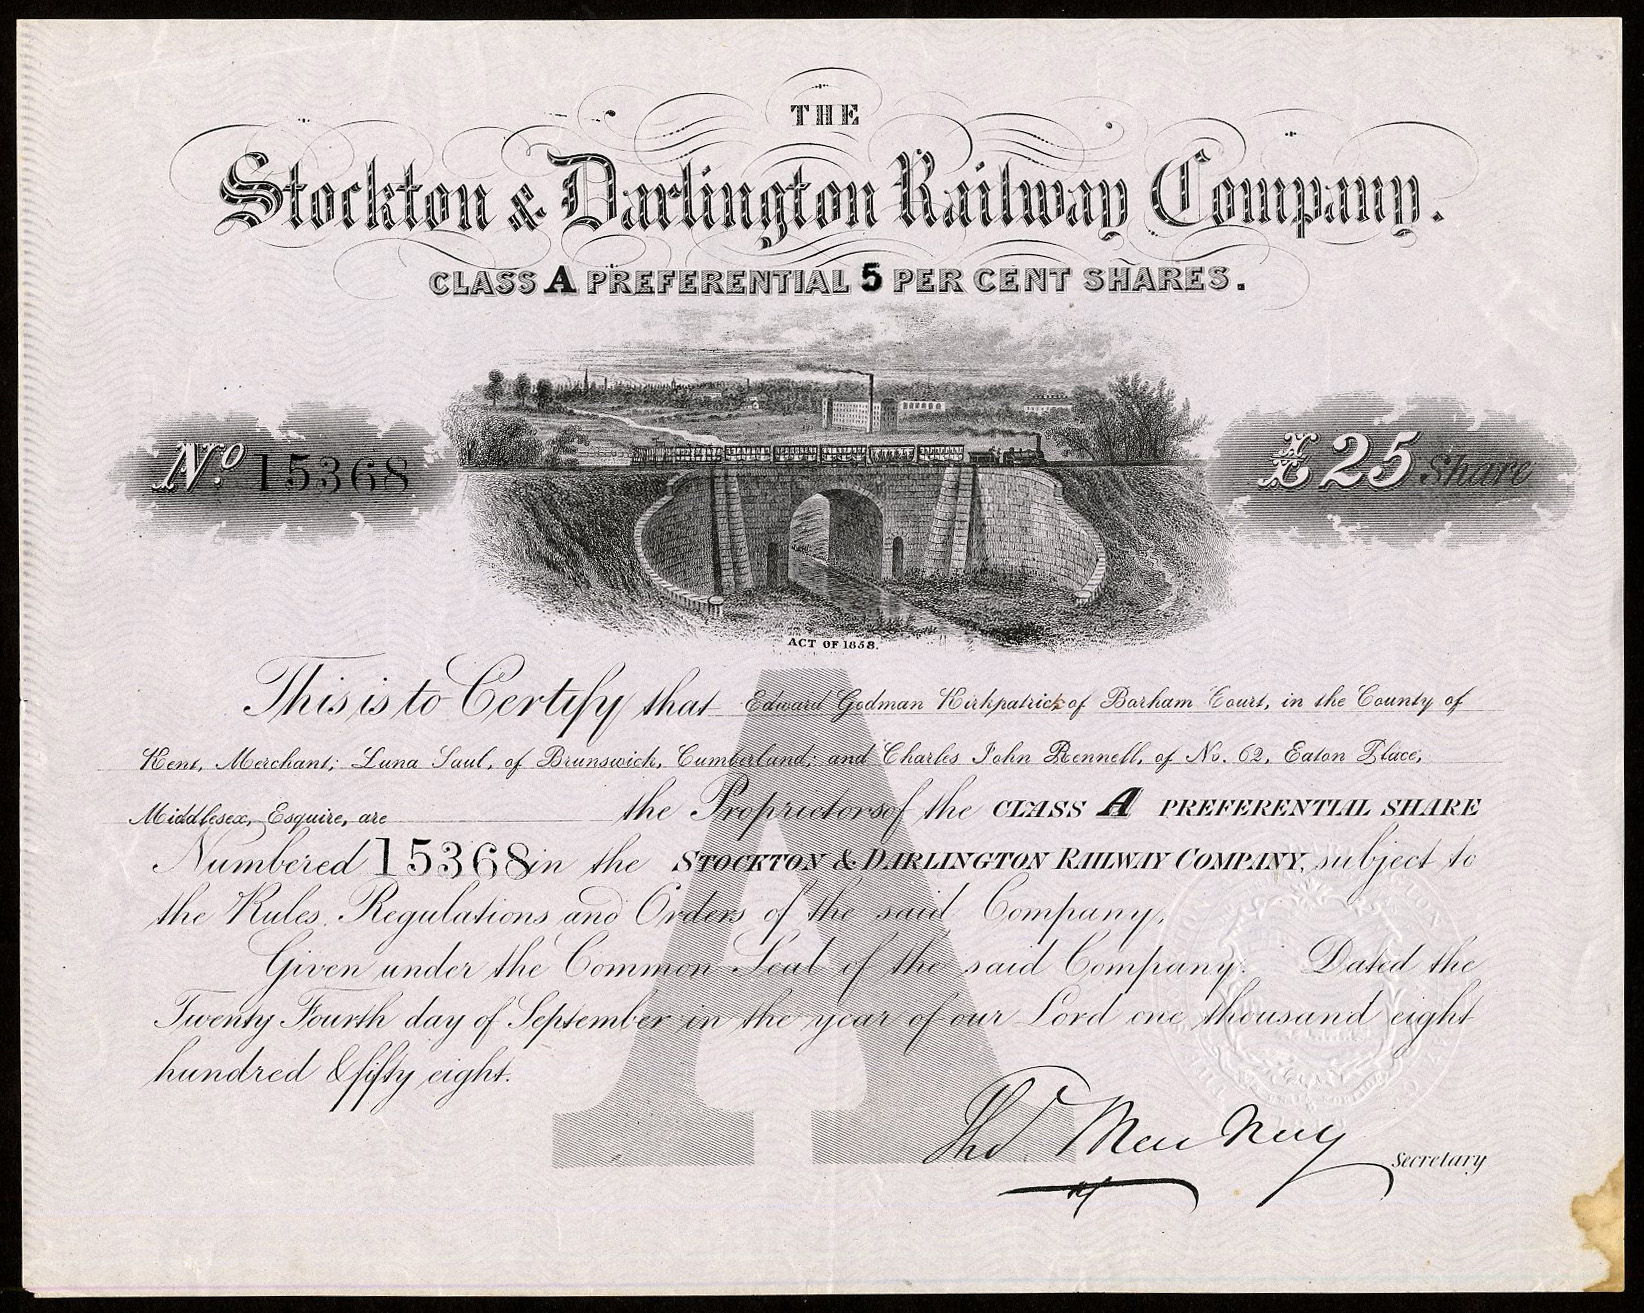 THE
Stockton & Darlington Railway Company.
CLASS A PREFERENTIAL 5 PER CENT SHARES.
No. 15368
£25 Share
ACT OF 1858.
This is to Certify that Edward Godman Kirkpatrick of Barham Court, in the County of
Kent, Merchant; Luna Saul, of Brunswick, Cumberland; and Charles John Rennell, of No. 62, Eaton Place,
Middlesex, Esquire, are the Proprietors of the CLASS A PREFERENTIAL SHARE
Numbered 15368 in the STOCKTON & DARLINGTON RAILWAY COMPANY, subject to
the Rules, Regulations and Orders of the said Company,
Given under the Common Seal of the said Company. Dated the
Twenty Fourth day of September in the year of our Lord one thousand eight
hundred & fifty eight.
A
Thos MacNay
Secretary